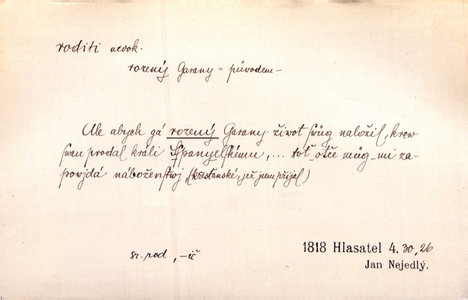 roditi nedok.
rozený Garany = původem –
Ale abych gá rozený Garany život swůg naložil, krew
swau prodal králi Sspanyelskému, ... toť otče můg mi za-
powjdá náboženstwj (křesťanské, jež jsem přijal)
sr. rod, -ič
1818 Hlasatel 4. 30, 26
Jan Nejedlý.